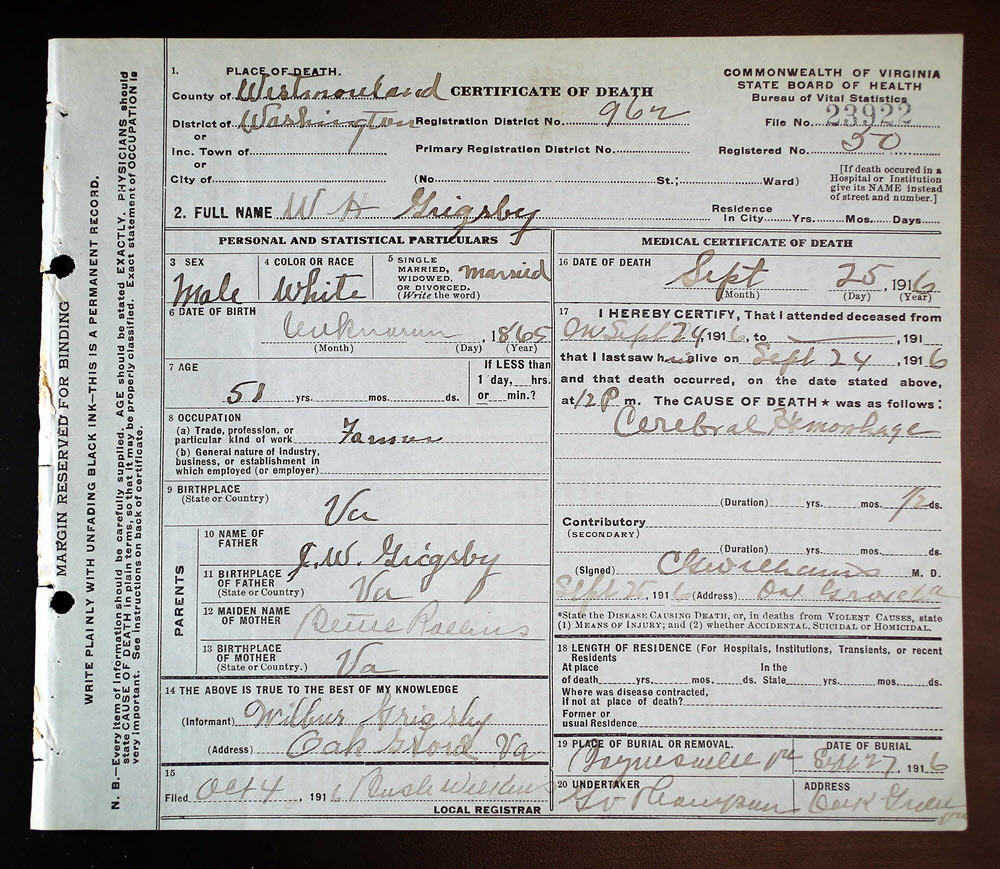 MARGIN RESERVED FOR BINDING
WRITE PLAINLY WITH UNFADING BLACK INK—THIS IS A PERMANENT RECORD.
N. B.—Every item of information should be carefully supplied. AGE should be stated EXACTLY. PHYSICIANS should
state CAUSE OF DEATH in plain terms, so that it may be properly classified. Exact statement of OCCUPATION is
very important. See instructions on back of certificate.
1. PLACE OF DEATH.
County of Westmoreland
District of Washington
or
Inc. Town of
or
City of
CERTIFICATE OF DEATH
Registration District No. 962
Primary Registration District No.
(No. St.; Ward)
COMMONWEALTH OF VIRGINIA
STATE BOARD OF HEALTH
Bureau of Vital Statistics
File No. 23922
Registered No. 50
[If death occured in a
Hospital or Institution
give its NAME instead
of street and number.]
2. FULL NAME W H Grigsby
Residence
In City Yrs. Mos. Days
PERSONAL AND STATISTICAL PARTICULARS
3 SEX
Male
4 COLOR OR RACE
White
5 SINGLE
MARRIED,
WIDOWED,
OR DIVORCED.
(Write the word)
Married
6 DATE OF BIRTH
Unknown, 1865
(Month) (Day) (Year)
7 AGE
51 yrs. mos. ds.
If LESS than
1 day, hrs.
or min.?
8 OCCUPATION
(a) Trade, profession, or
particular kind of work Farmer
(b) General nature of industry,
business, or establishment in
which employed (or employer)
9 BIRTHPLACE
(State or Country)
Va
PARENTS
10 NAME OF
FATHER
J.W. Grigsby
11 BIRTHPLACE
OF FATHER
(State or Country)
Va
12 MAIDEN NAME
OF MOTHER
Rollins
13 BIRTHPLACE
OF MOTHER
(State or Country.)
Va
14 THE ABOVE IS TRUE TO THE BEST OF MY KNOWLEDGE
(Informant) Wilbur Grigsby
(Address) Oak Grove Va
15
Filed Oct 4, 1916
LOCAL REGISTRAR
MEDICAL CERTIFICATE OF DEATH
16 DATE OF DEATH
Sept 25, 1916
(Month) (Day) (Year)
17 I HEREBY CERTIFY, That I attended deceased from
On Sept 24, 1916, to , 191
that I last saw him alive on Sept 24, 1916
and that death occurred, on the date stated above,
at 12 P m. The CAUSE OF DEATH ★ was as follows:
Cerebral Hemorrhage
(Duration) yrs. mos. 1/2 ds.
Contributory
(SECONDARY)
(Duration) yrs. mos. ds.
(Signed) M. D.
Sept 25, 1916 (Address) Oak Grove Va
*State the DISEASE CAUSING DEATH, or, in deaths from VIOLENT CAUSES, state
(1) MEANS OF INJURY; and (2) whether ACCIDENTAL, SUICIDAL or HOMICIDAL.
18 LENGTH OF RESIDENCE (For Hospitals, Institutions, Transients, or recent
Residents
At place In the
of death yrs. mos. ds. State yrs. mos. ds.
Where was disease contracted,
If not at place of death?
Former or
usual Residence
19 PLACE OF BURIAL OR REMOVAL.
DATE OF BURIAL
Sept 27, 1916
20 UNDERTAKER
ADDRESS
Oak Grove